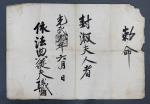 勅命
封淑夫人者
光武年六月 日
依法典從夫職